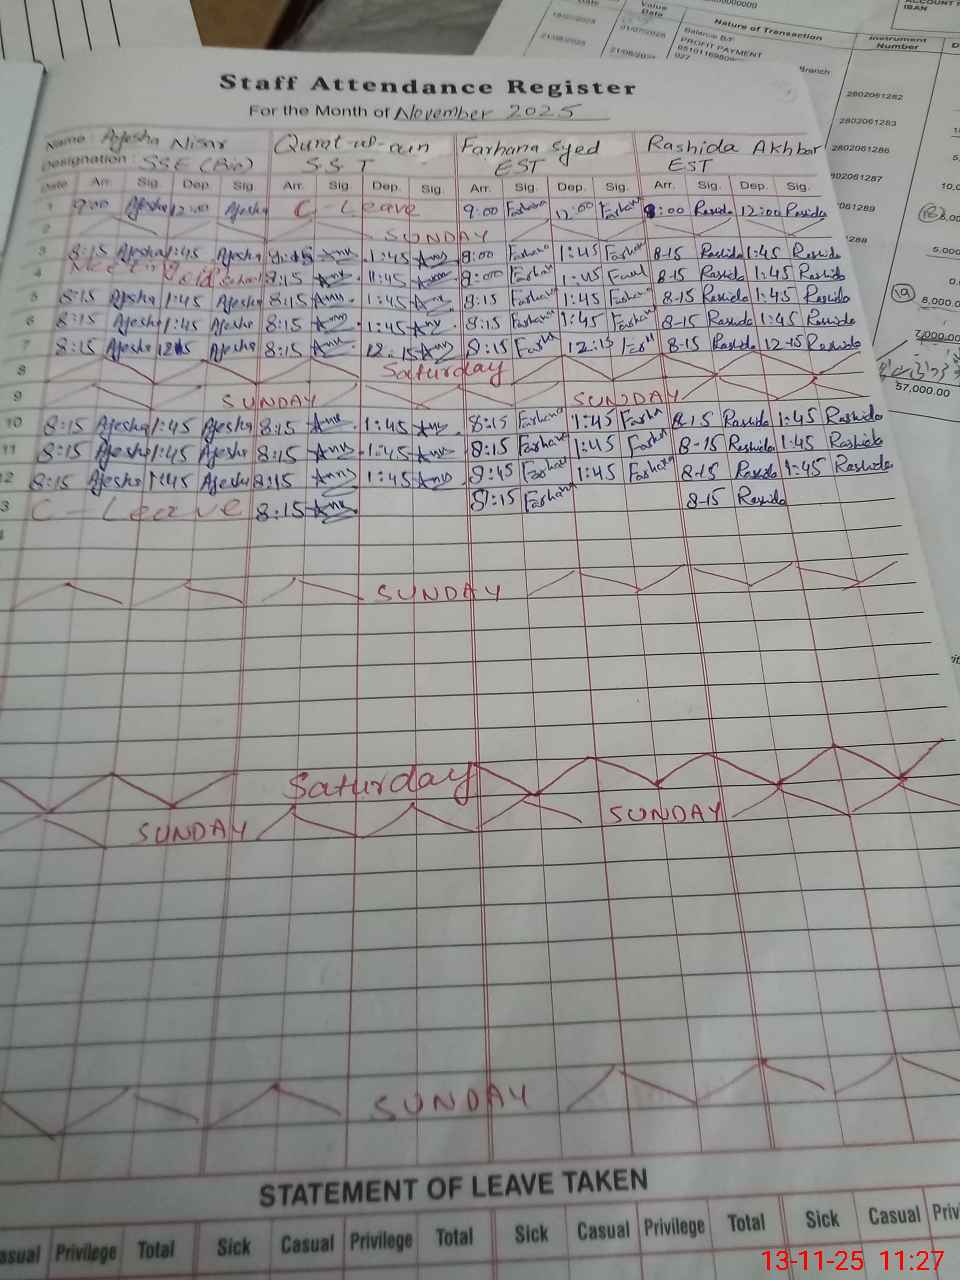 Value Date
Nature of Transaction
Instrument Number
IBAN
Balance B/F
PROFIT PAYMENT
Branch
2802061282
2802061283
2802061286
2802061287
57,000.00
Staff Attendance Register
For the Month of November 2025
Name : Ayesha Nisar Qurat-ul-ain Farhana Syed Rashida Akhbar
Designation : SSE (Bio) S S T EST EST
Date Arr. Sig. Dep. Sig. Arr. Sig. Dep. Sig. Arr. Sig. Dep. Sig. Arr. Sig. Dep. Sig.
1 9:00 Ayesha 12:00 Ayesha C-Leave 9:00 Farhana 12:00 Farhana 8:00 Rasida 12:00 Rasida
2 SUNDAY
3 8:15 Ayesha 1:45 Ayesha 1:45 9:00 Farhana 1:45 Farhana 8-15 Rashida 1:45 Rashida
4 8:15 1:45 9:00 Farhana 1:45 8-15 Rashida 1:45 Rashida
5 8:15 Ayesha 1:45 Ayesha 8:15 1:45 8:15 Farhana 1:45 Farhana 8-15 Rashida 1:45 Rashida
6 8:15 Ayesha 1:45 Ayesha 8:15 1:45 8:15 Farhana 1:45 Farhana 8-15 Rashida 1:45 Rashida
7 8:15 Ayesha 12:15 Ayesha 8:15 12:15 8:15 Farha 12:15 8-15 Rashida 12-15 Rashida
8 Saturday
9 SUNDAY SUNDAY
10 8:15 Ayesha 1:45 Ayesha 8:15 1:45 8:15 Farhana 1:45 Farha 8-15 Rashida 1:45 Rashida
11 8:15 Ayesha 1:45 Ayesha 8:15 1:45 8:15 Farhana 1:45 Farhana 8-15 Rashida 1:45 Rashida
12 8:15 Ayesha 1:45 Ayesha 8:15 1:45 8:45 Farhana 1:45 Farhana 8-15 Rasida 1:45 Rashida
3 C-Leave 8:15 8:15 Farhana 8-15 Rasida
SUNDAY
Saturday
SUNDAY SUNDAY
SUNDAY
STATEMENT OF LEAVE TAKEN
asual Privilege Total Sick Casual Privilege Total Sick Casual Privilege Total Sick Casual Privi
13-11-25 11:27